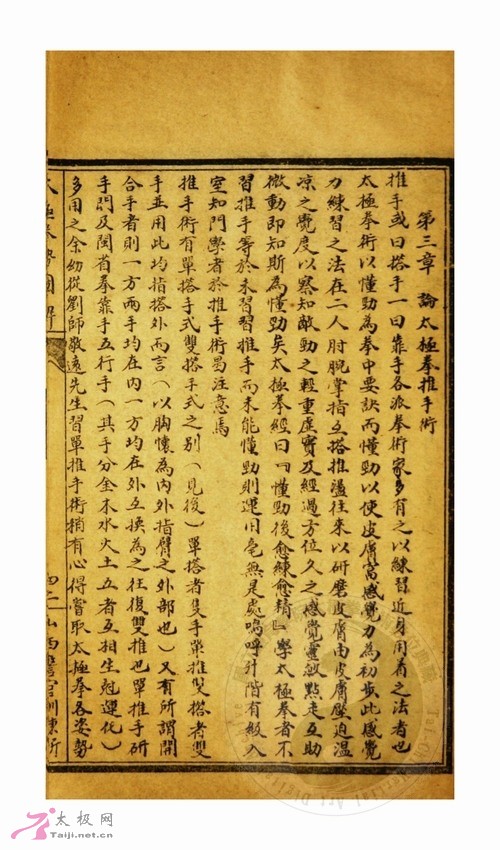 第三章　論太極拳推手術
推手或曰搭手一曰靠手各派拳術家多有之以練習近身用着之法者也
太極拳術以懂勁為拳中要訣而懂勁以使皮膚富感覺力為初步此感覺
力練習之法在二人肘腕掌指互搭推盪往來以研磨皮膚由皮膚壓迫温
凉之覺度以察知敵勁之輕重虛實及經過方位久之感覺靈敏黏走互助
微動即知斯為懂勁矣太極拳經曰『懂勁後愈練愈精』學太極拳者不
習推手等於未習習推手而未能懂勁則運用毫無是處嗚呼升階有級入
室知門學者於推手術曷注意焉
推手術有單搭手式雙搭手式之别（見後）單搭者隻手單推雙搭者雙
手並用此均指搭外而言（以胸懷為內外指臂之外部也）又有所謂開
合手者則一方兩手均在內一方均在外互換為之往復雙推也單推手研
手閃及閩省拳靠手五行手（其手分金木水火土五者互相生尅運化）
多用之余幼從劉師敬遠先生習單推手術稍有心得嘗取太極拳各姿勢
太极网
Taiji.net.cn